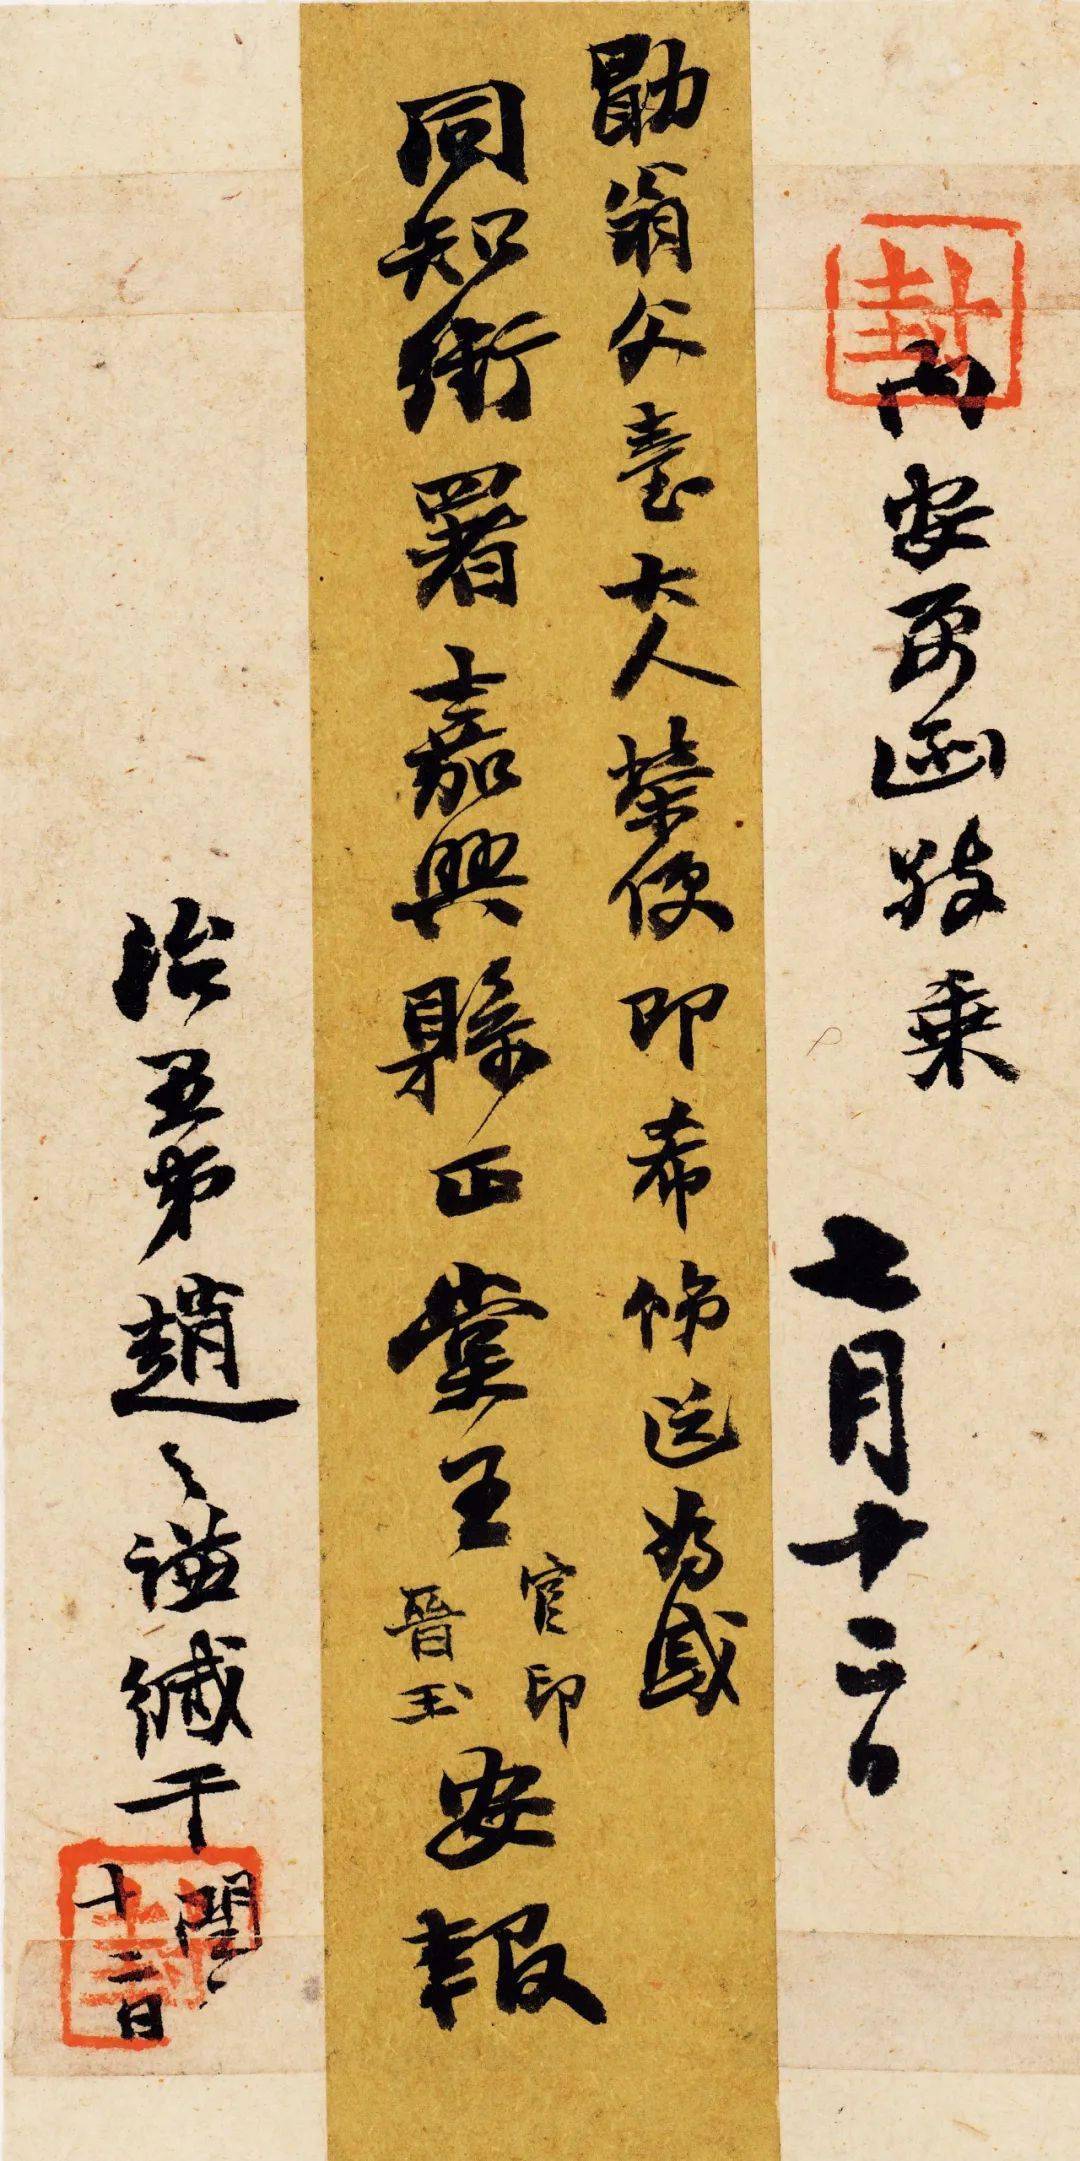 封
内安要函敬乘
七月十二日
勖翁父臺大人榮便即希飭送為感
同知銜署嘉興縣正堂王
官印
晉玉
安報
治五弟趙之謙緘干
閏
十二日
封